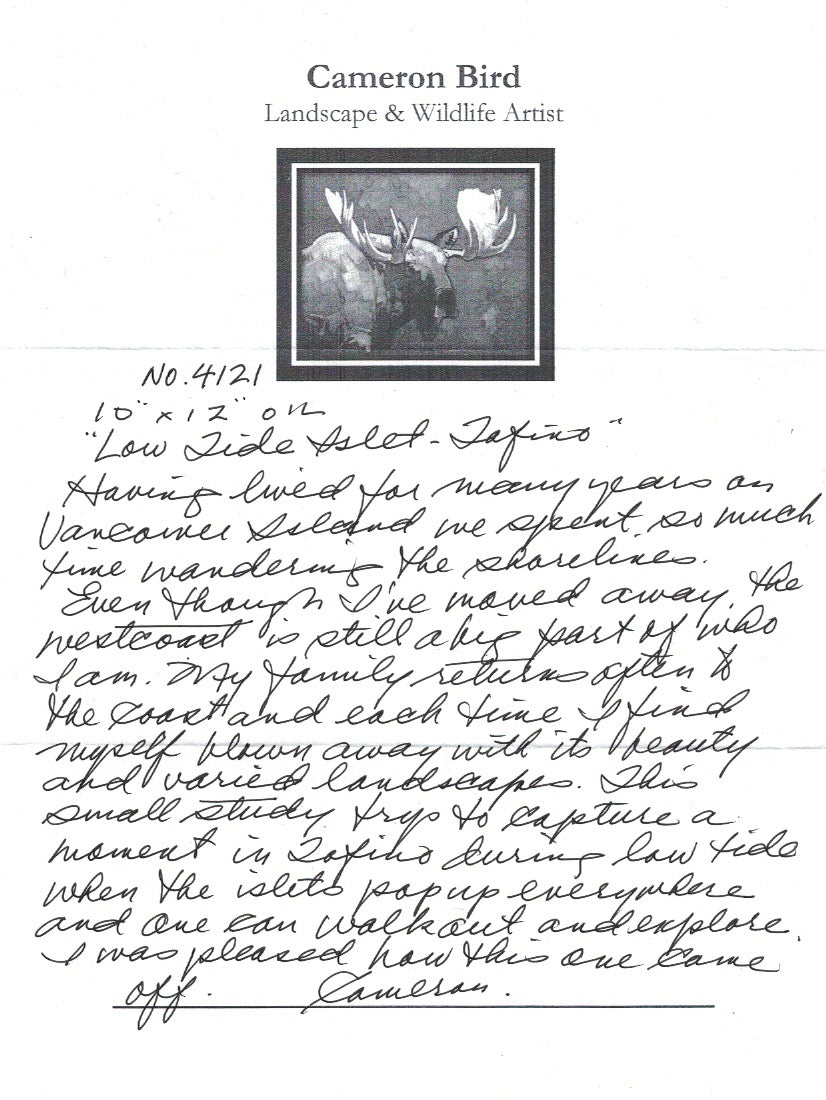 Cameron Bird
Landscape & Wildlife Artist
No. 4121
10" x 12" oil
"Low Tide Islet - Tofino"
Having lived for many years on
Vancouver Island we spent so much
time wandering the shorelines.
Even though I've moved away, the
westcoast is still a big part of who
I am. My family returns often to
the coast and each time I find
myself blown away with its beauty
and varied landscapes. This
small study trys to capture a
moment in Tofino during low tide
when the islets pop up everywhere
and one can walk out and explore.
I was pleased how this one came
off. Cameron.